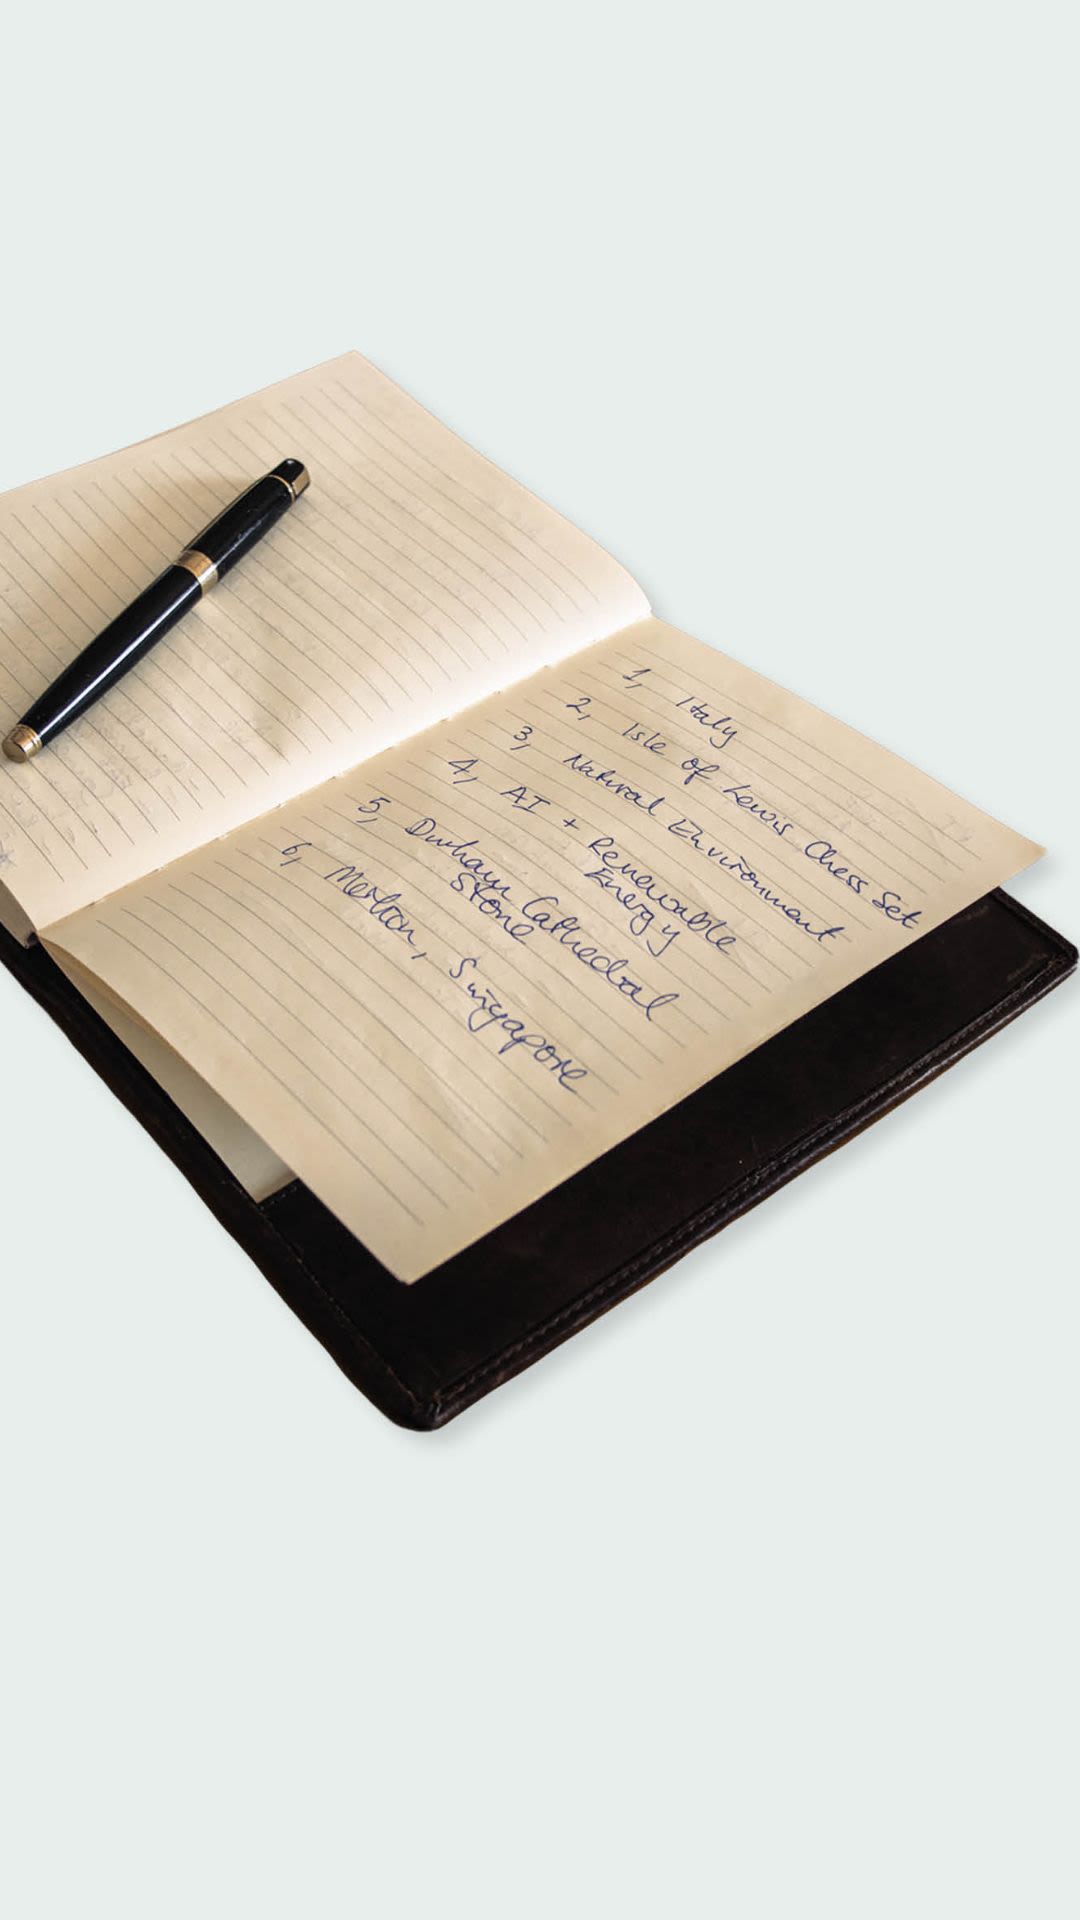 1, Italy
2, Isle of Lewis Chess Set
3, Natural Environment
4, AI + Renewable
Energy
5, Durham Cathedral
Stone
6, Merlion, Singapore